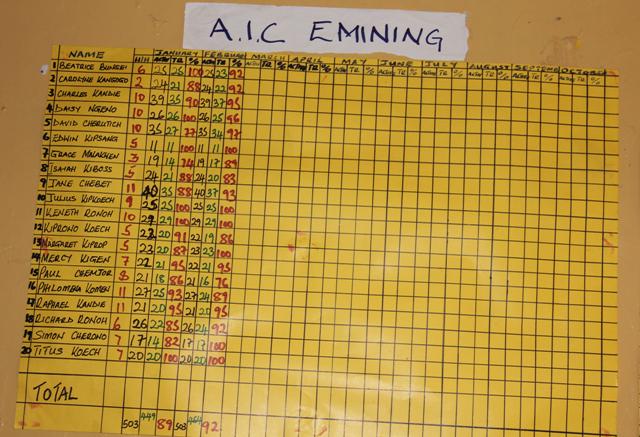 A.I.C EMINING
NAME H/H JANUARY FEBRUAR MARCH APRIL MAY JUNE JULY AUGUST SEPTEMB OCTOBER
ACTIVE TR % ACTIVE TR % ACTIVE TR % ACTIVE TR % ACTIVE TR % ACTIVE TR % ACTIVE TR % ACTIVE TR % ACTIVE TR % ACTIVE TR %
1 BEATRICE 6 25 25 100 25 23 92
2 CAROLYNE KANGOGO 2 24 21 88 24 22 92
3 CHARLES KANDIE 10 39 35 90 39 37 95
4 DAISY NGENO 10 26 26 100 26 25 96
5 DAVID CHERUTICH 10 35 27 77 35 34 97
6 EDWIN KIPSANG 5 11 11 100 11 11 100
7 GRACE 3 19 14 74 19 17 89
8 ISAIAH KIBOSS 5 24 21 88 24 20 83
9 JANE CHEBET 11 40 35 88 40 37 93
10 JULIUS KIPKOECH 9 25 25 100 25 25 100
11 KENETH RONOH 10 29 29 100 29 29 100
12 KIPRONO KOECH 5 22 20 91 22 19 86
13 MARGARET KIPROP 5 23 20 87 23 23 100
14 MERCY KIGEN 7 22 21 95 22 21 95
15 PAUL CHEMJOR 8 21 18 86 21 16 76
16 PHILOMENA KOMEN 11 27 25 93 27 24 89
17 RAPHAEL KANDIE 11 21 20 95 21 20 95
18 RICHARD RONOH 6 26 22 85 26 24 92
19 SIMON CHERONO 7 17 14 82 17 17 100
20 TITUS KOECH 7 20 20 100 20 20 100
TOTAL
503 449 89 503 464 92